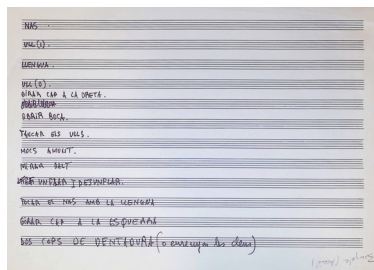 NAS.
ULL(1).
LLENGUA.
ULL(D).
GIRAR CAP A LA DRETA.
OBRIR BOCA.
TANCAR ELS ULLS.
MOCS AMUNT.
MIRAR DALT
UNFLAR I DESUNFLAR.
TOCAR EL NAS AMB LA LLENGUA
GIRAR CAP A LA ESQUERRA
DOS COPS DE DENTADURA (o ensenyar les dens)